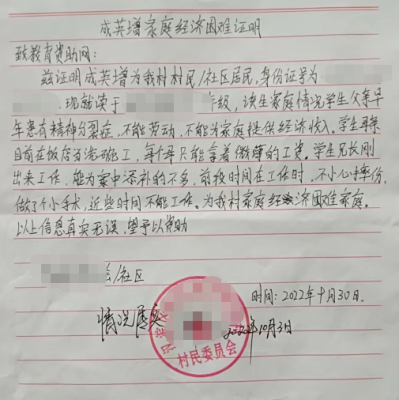 成英增家庭经济困难证明
致教育资助网:
兹证明成英增为我村村民/社区居民,身份证号为
,现就读于 年级,该生家庭情况学生父亲早
年患有精神分裂症,不能劳动,不能为家庭提供经济收入。学生母亲
目前在饭店当洗碗工,每个月只能拿着微薄的工资。学生兄长刚
出来工作,能为家中添补的不多,前段时间在工作时,不小心摔伤,
做了个小手术,近些时间不能工作。为我村家庭经济困难家庭。
以上信息真实无误,望予以资助
/社区
时间:2022年9月30日.
情况属实
2022年10月3日
村民委员会